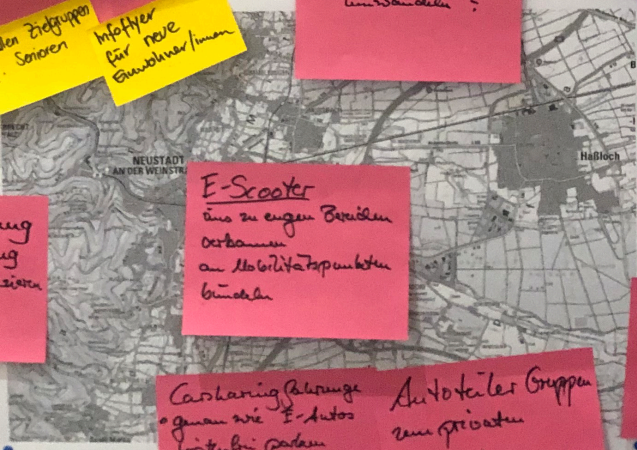 Zielgruppen
Senioren
Infoflyer
für neue
Einwohner/innen
umwandeln ?
NEUSTADT
AN DER WEINSTR
Haßloch
E-Scooter
aus zu engen Bereichen
verbannen
an Mobilitätspunkten
bündeln
Carsharing Fahrzeuge
genau wie E-Autos
parken
Autoteiler Gruppen
zum privaten